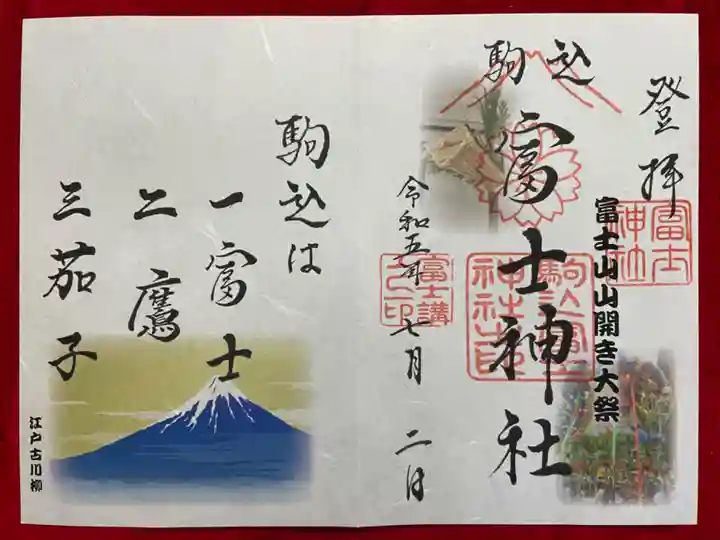 登拝
富士山山開き大祭
駒込
富士神社
令和五年七月二日
駒込は
一富士
二鷹
三茄子
江戸古川柳
富士神社
富士講之印